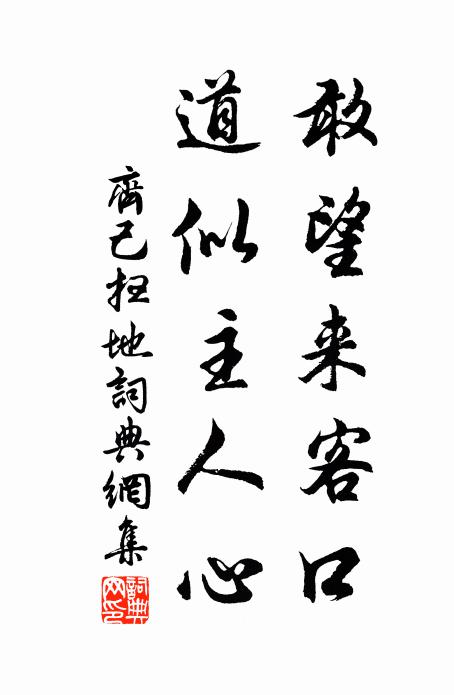 敢望来客口
道似主人心
齊己扫地詞典網集
詞典網印